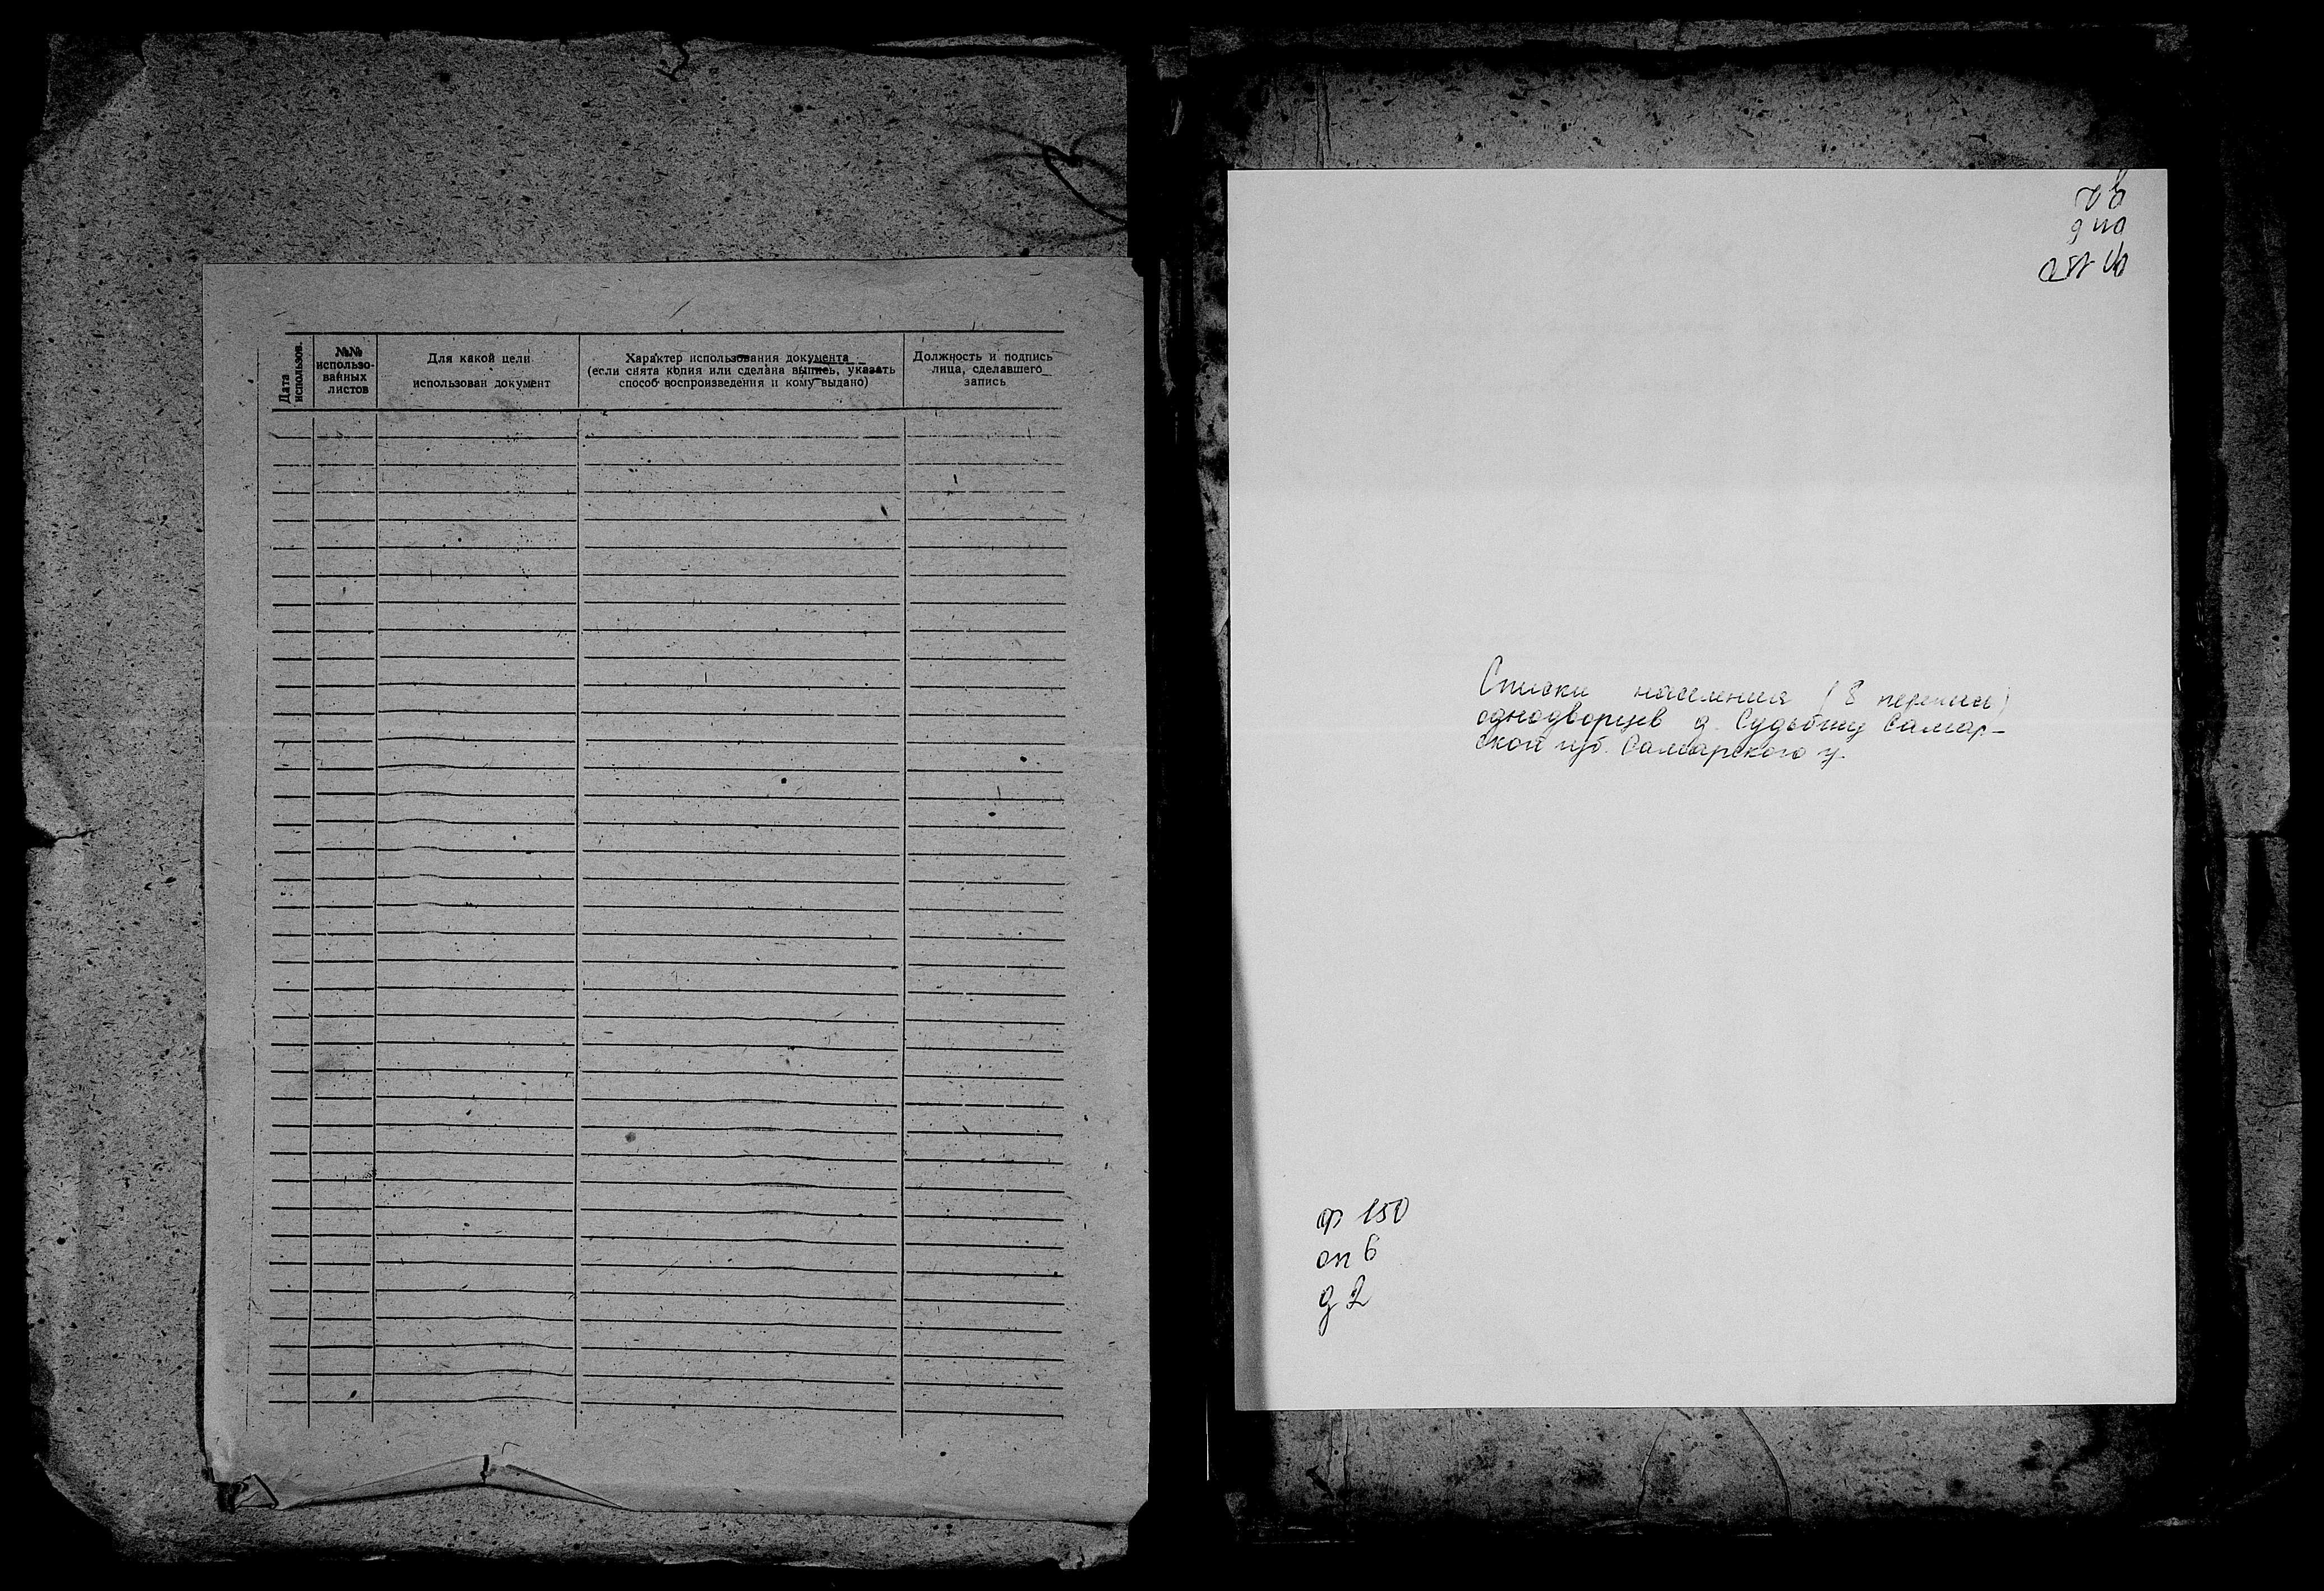 Дата
использов.
№№
использо-
ванных
листов
Для какой цели
использован документ
Характер использования документа
(если снята копия или сделана выпись, указать
способ воспроизведения и кому выдано)
Должность и подпись
лица, сделавшего
запись
Списки населения (8 перепись)
однодворцев д. Судьбищу Самар-
ской губ. Самарского у.
ф 150
оп 6
д 2